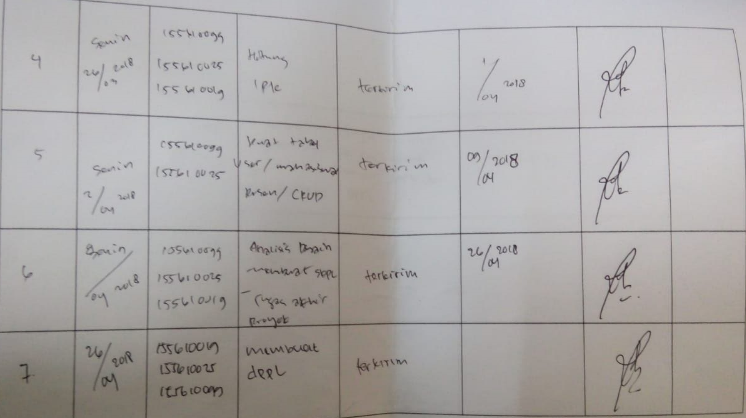 4
Senin
26/03 2018
155610099
155610025
155610019
Hitung
IPK
terkirim
1/04 2018
5
Senin
2/04 2018
155610099
155610025
Buat tabel
User/mahasiswa
Dosen/CRUD
terkirim
09/04 2018
6
Senin
/04 2018
155610099
155610025
155610019
Analisis Desain
membuat skpl
Tugas akhir
Proyek
terkirim
26/04 2018
7
26/04 2018
155610019
155610025
155610099
membuat
dppl
terkirim